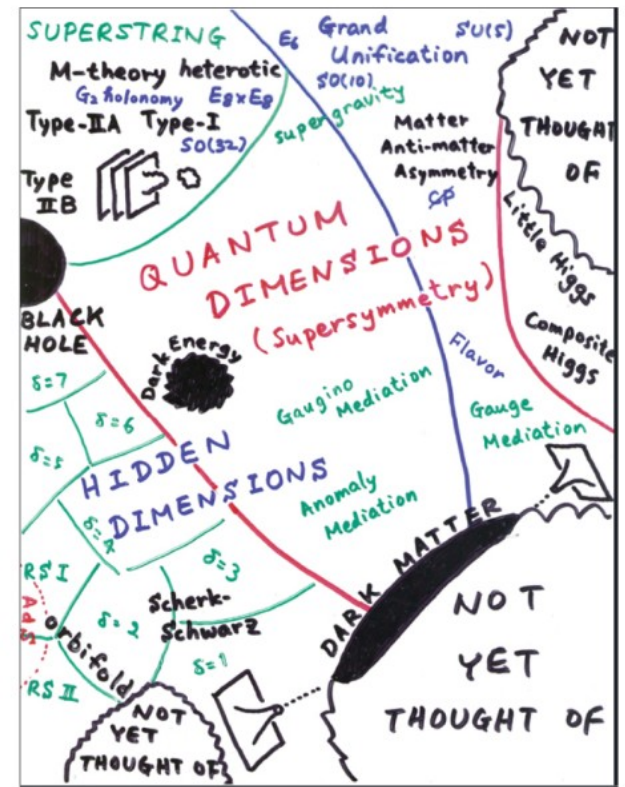 SUPERSTRING
M-theory heterotic
G2 holonomy E8xE8
Type-IIA Type-I
SO(32)
Type
IIB
E6 Grand SU(5)
Unification
SO(10)
supergravity
Matter
Anti-matter
Asymmetry
CP
NOT
YET
THOUGHT
OF
Little Higgs
Composite
Higgs
QUANTUM
DIMENSIONS
(Supersymmetry)
BLACK
HOLE
Dark Energy
Flavor
Gaugino
Mediation
Gauge
Mediation
Anomaly
Mediation
δ=7
δ=6
δ=5
HIDDEN
DIMENSIONS
δ=4
δ=3
RS I
AdS
orbifold
δ=2
Scherk-
Schwarz
δ=1
RS II
DARK MATTER
NOT
YET
THOUGHT OF
NOT
YET
THOUGHT OF